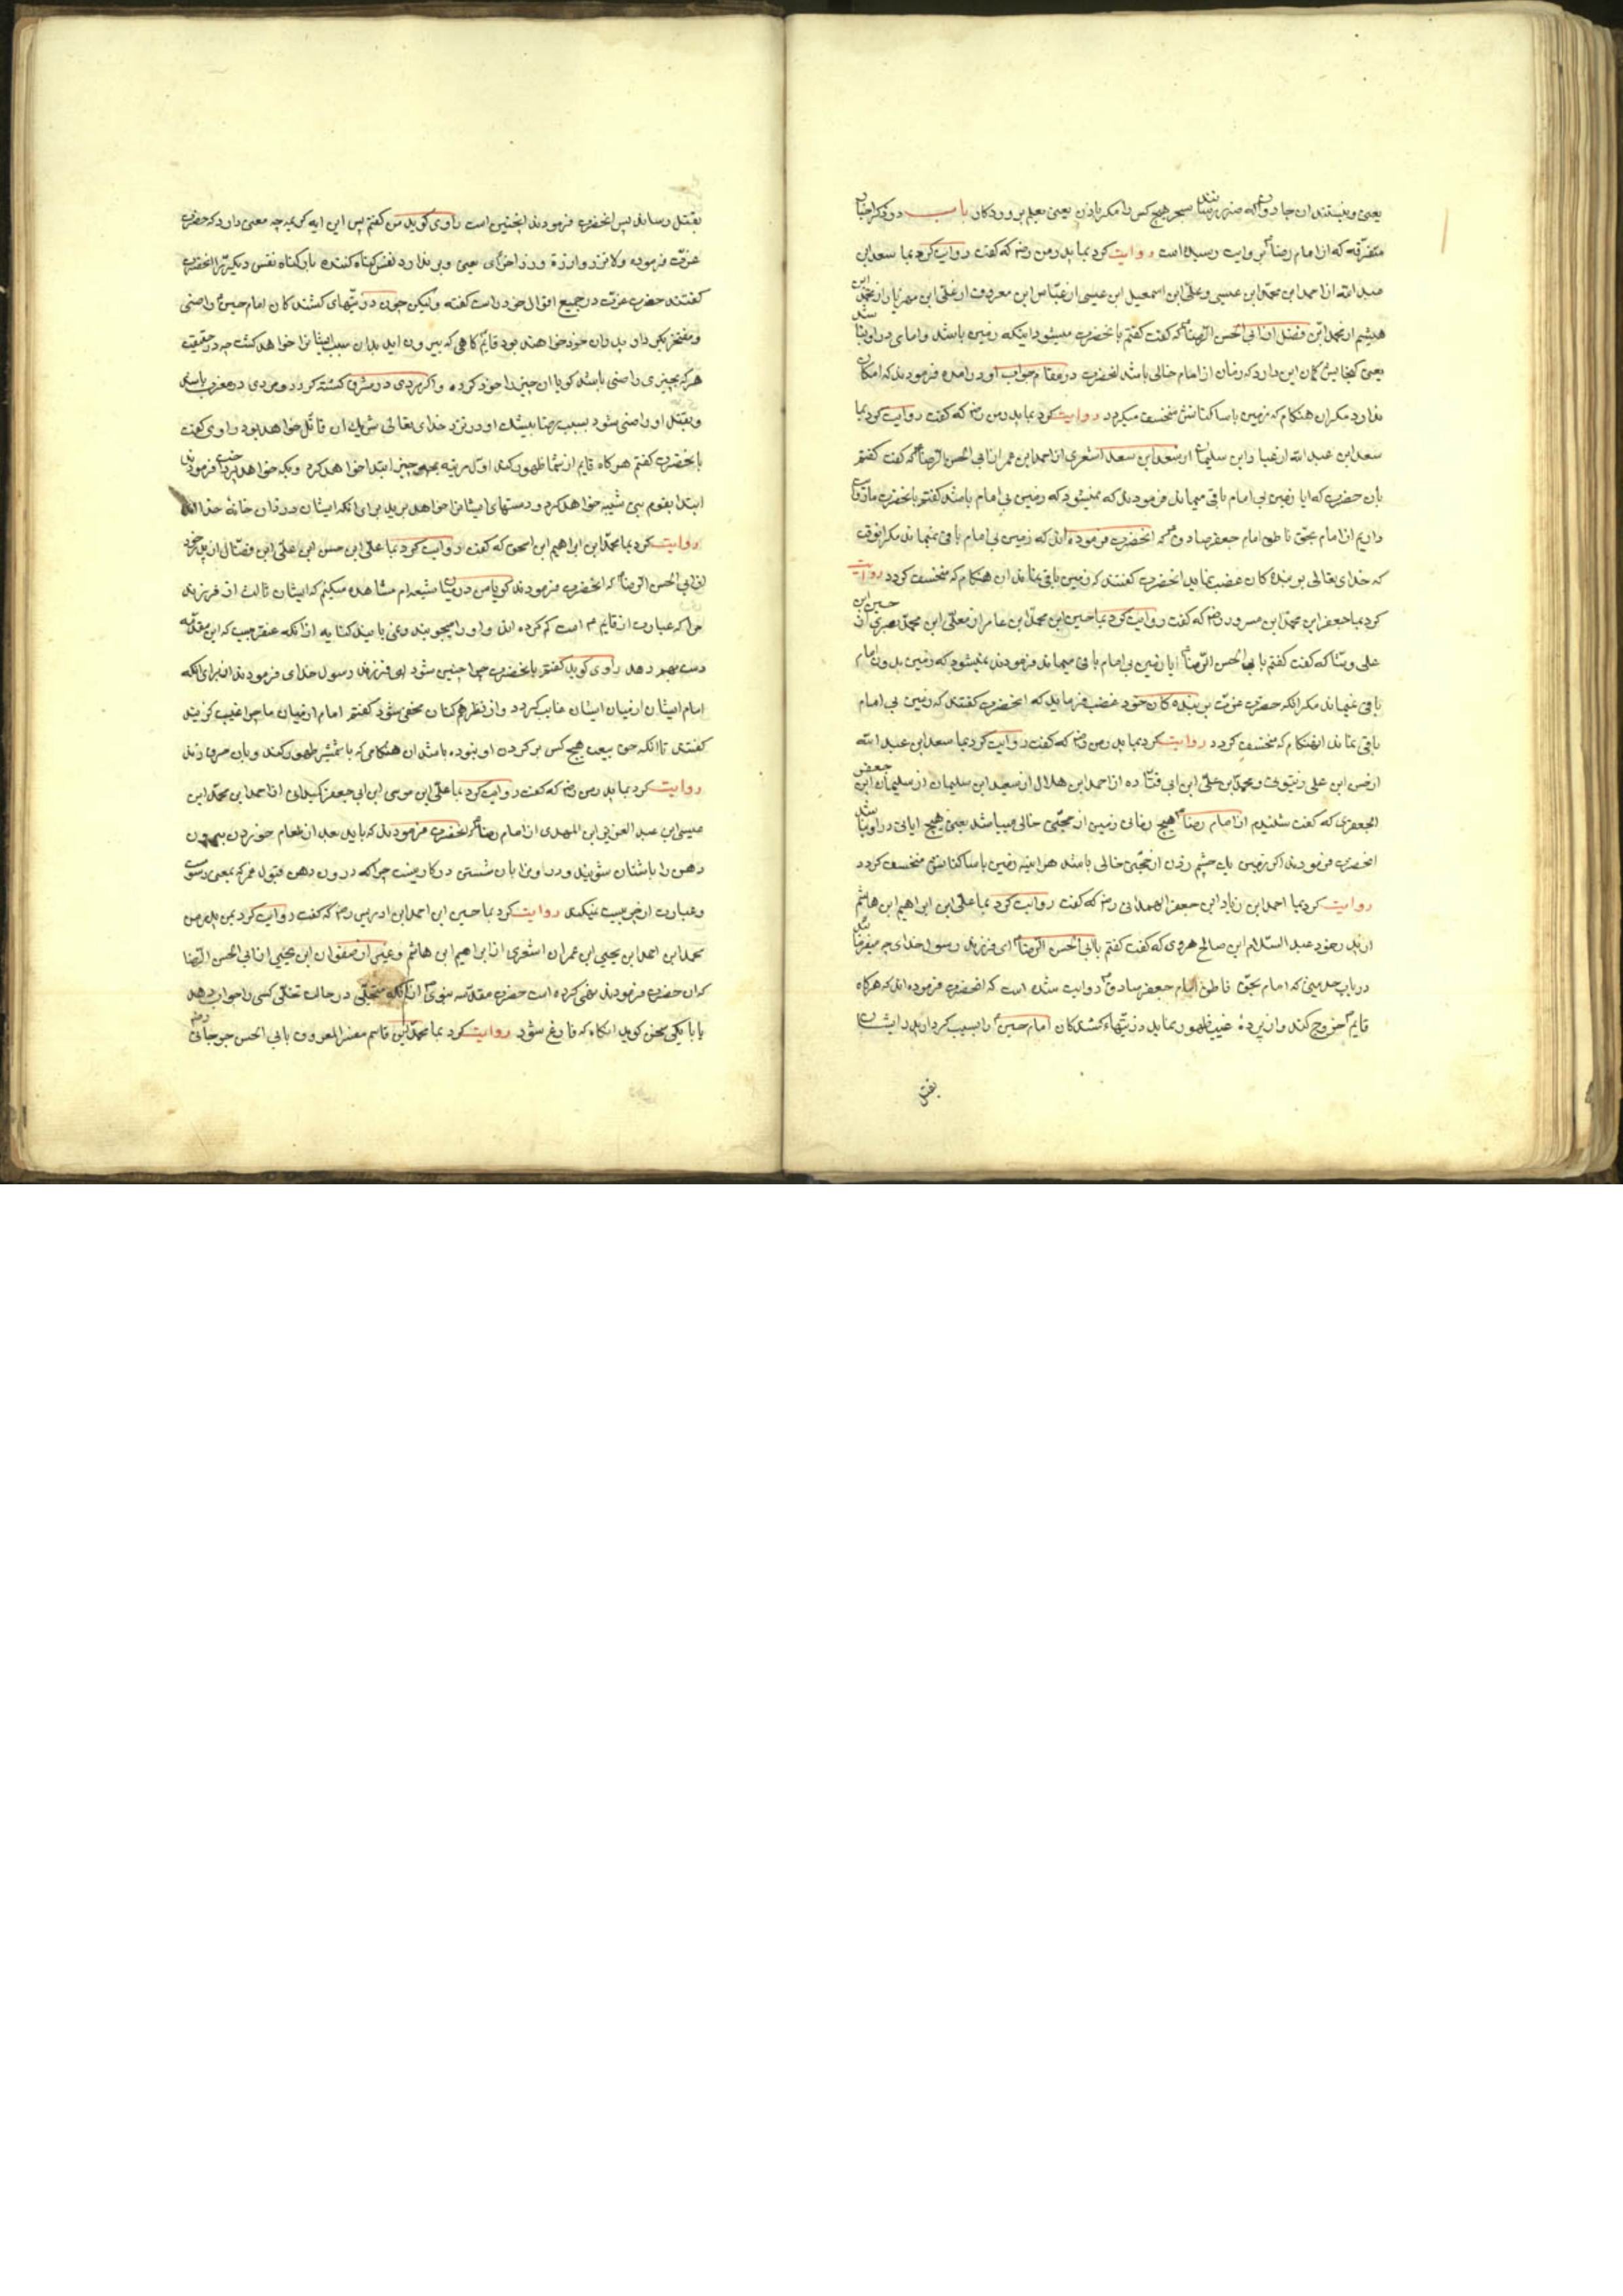 یعنی و نیستند آن جادوان که ضرر رسانند بسحر هیچ کس را مگر باذن یعنی بعلم پروردکار باب در ذکر اخبار
متفرقه که از امام رضا ع روایت رسیده است روایت کرد بما پدر من رض که گفت روایت کرد بما سعد ابن
عبد الله از احمد ابن محمد ابن عیسی و علی ابن اسمعیل ابن عیسی از عباس ابن معروف از علی ابن مهزیار از محمد ابن
هیثم از محمد ابن فضل از ابی الحسن الرضا ع که گفت گفتم بانحضرت میشود اینکه زمین باشد و امامی در او نباشد
یعنی گنجایش کان این دارد که زمان از امام خالی باشد انحضرت در مقام جواب او در آمده فرمودند که امکان
ندارد مکر ان هنکام که زمین با ساکنانش منخسف میکردد روایت کرد بما پدر من رض که گفت روایت کرد بما
سعد ابن عبد الله از عباد ابن سلیمان از سعد ابن سعد اشعری از احمد ابن عمر از ابی الحسن الرضا ع که گفت گفتم
بان حضرت که ایا زمین بی امام باقی میماند فرمودند که نمیشود که زمین بی امام باشد گفتم بانحضرت ما روایت
داریم از امام بحق ناطق امام جعفر صادق ع که انحضرت فرموده اند که زمین بی امام باقی نمیماند مکر انوقت
که خدای تعالی بر بنده کان غضب نماید انحضرت گفتند که زمین باقی نماند ان هنکام که منخسف کردد روایت
کرد بما جعفر ابن محمد ابن مسرور رض که گفت روایت کرد بما حسین ابن محمد ابن عامر از معلی ابن محمد بصری از حسین ابن
علی وشا که گفت گفتم با ابی الحسن الرضا ع ایا زمین بی امام باقی میماند فرمودند نمیشود که زمین بدون امام
باقی بماند مکر انکه حضرت عزت بر بنده کان خود غضب فرماید که انحضرت گفتند که زمین بی امام
باقی نماند انهنکام که منخسف کردد روایت کرد بما پدر من رض که گفت روایت کرد بما سعد ابن عبد الله
از حسن ابن علی زیتونی و محمد ابن علی ابن ابی قتاده از احمد ابن هلال از سعید ابن سلیمان از سلیمان ابن جعفر
الجعفری که گفت شنیدم از امام رضا ع هیچ زمانی زمین از حجتی خالی میباشد یعنی هیچ ایامی در او نباشد
انحضرت فرمودند اکر زمین یک چشم زدن از حجتی خالی باشد هر اینه زمین با ساکنانش منخسف کردد
روایت کرد بما احمد ابن زیاد ابن جعفر الهمدانی رض که گفت روایت کرد بما علی ابن ابراهیم ابن هاشم
از پدر خود عبد السلام ابن صالح هروی که گفت گفتم بابی الحسن الرضا ع ای فرزند رسول خدای چه میفرمائید
در باب حدیثی که امام بحق ناطق امام جعفر صادق ع روایت شده است که انحضرت فرموده اند که هرکاه
قایم ع خروج کند و از پرده غیب ظهور نماید ذریتهاء کشنده کان امام حسین ع را بسبب کردار پدر ایشان
بقتل
بقتل رساند پس انحضرت فرمودند انچنین است راوی کوید من گفتم پس این ایه کریمه چه معنی دارد که حضرت
عزت فرموده ولا تزر وازرة وزر اخری یعنی و بر ندارد نفس کناه کننده بار کناه نفس دیکر را انحضرت
گفتند حضرت عزت در جمیع اقوال خود راست گفته و لیکن چون ذریتهای کشنده کان امام حسین ع راضی
و مفتخر بکردار پدران خود خواهند بود قایم کاهی که بیرون اید بدان سبب ایشانرا خواهد کشت چه در حقیقت
هر که بچیزی راضی باشد کویا ان چیز را خود کرده و اکر مردی در مشرق کشته کردد و مردی در مغرب باشد
و بقتل او راضی شود بسبب رضا بیشک او در نزد خدای تعالی شریک ان قاتل خواهد بود راوی گفت
بانحضرت گفتم هرکاه قایم از شما ظهور کند اول مرتبه بچه چیز ابتدا خواهد کرد و بکه خواهد پرداخت فرمودند
ابتدا بقوم بنی شیبه خواهد کرد و دستهای ایشانرا خواهد برید برای انکه ایشان دزدان خانهٔ خدا اند
روایت کرد بما محمد ابن ابراهیم ابن اسحق که گفت روایت کرد بما علی ابن حسن ابن علی ابن فضال از پدر خود
از ابی الحسن الرضا ع که انحضرت فرمودند کویا من در میان شیعه ام مشاهده میکنم که ایشان ثالث از فرزند
مرا که عبارت از قایم عم است کم کرده اند و او را میجویند و نمی یابند کنایه از انکه عنقریب که این مقدمه
دست بهم دهد راوی کوید گفتم بانحضرت چرا چنین شود ای فرزند رسول خدای فرمودند از برای انکه
امام ایشان از میان ایشان غایب کردد و از نظر همکنان مخفی شود گفتم امام از میان ما چرا غیب کزیند
گفتند تا انکه حق بیعت هیچ کس بر کردن او نبوده باشد ان هنکامی که با شمشیر ظهور کند و بان ضرب زند
روایت کرد بما پدر من رض که گفت روایت کرد بما علی ابن موسی ابن ابی جعفر کمیدانی از احمد ابن محمد ابن
عیسی ابن عبد العزیز ابن المهتدی از امام رضا ع که انحضرت فرمودند که باید بعد از طعام خوردن بیرون
دهن را باشنان شویند و درون را بان شستن در کار نیست چرا که درون دهن قبول غمر که بمعنی دسومت
و عبارت از چربیست نمیکند روایت کرد بما حسین ابن احمد ابن ادریس رض که گفت روایت کرد بمن پدر من
محمد ابن احمد ابن یحیی ابن عمران اشعری از ابراهیم ابن هاشم و غیره از صفوان ابن یحیی از ابی الحسن الرضا
که ان حضرت فرمودند نهی کرده است حضرت مقدسه نبوی ص از انکه متخلی در حالت تخلی کسی را جواب دهد
یا با یکی سخن کوید انکاه که فارغ شود روایت کرد بما محمد ابن قاسم مفسر المعروف بابی الحسن جرجانی رض